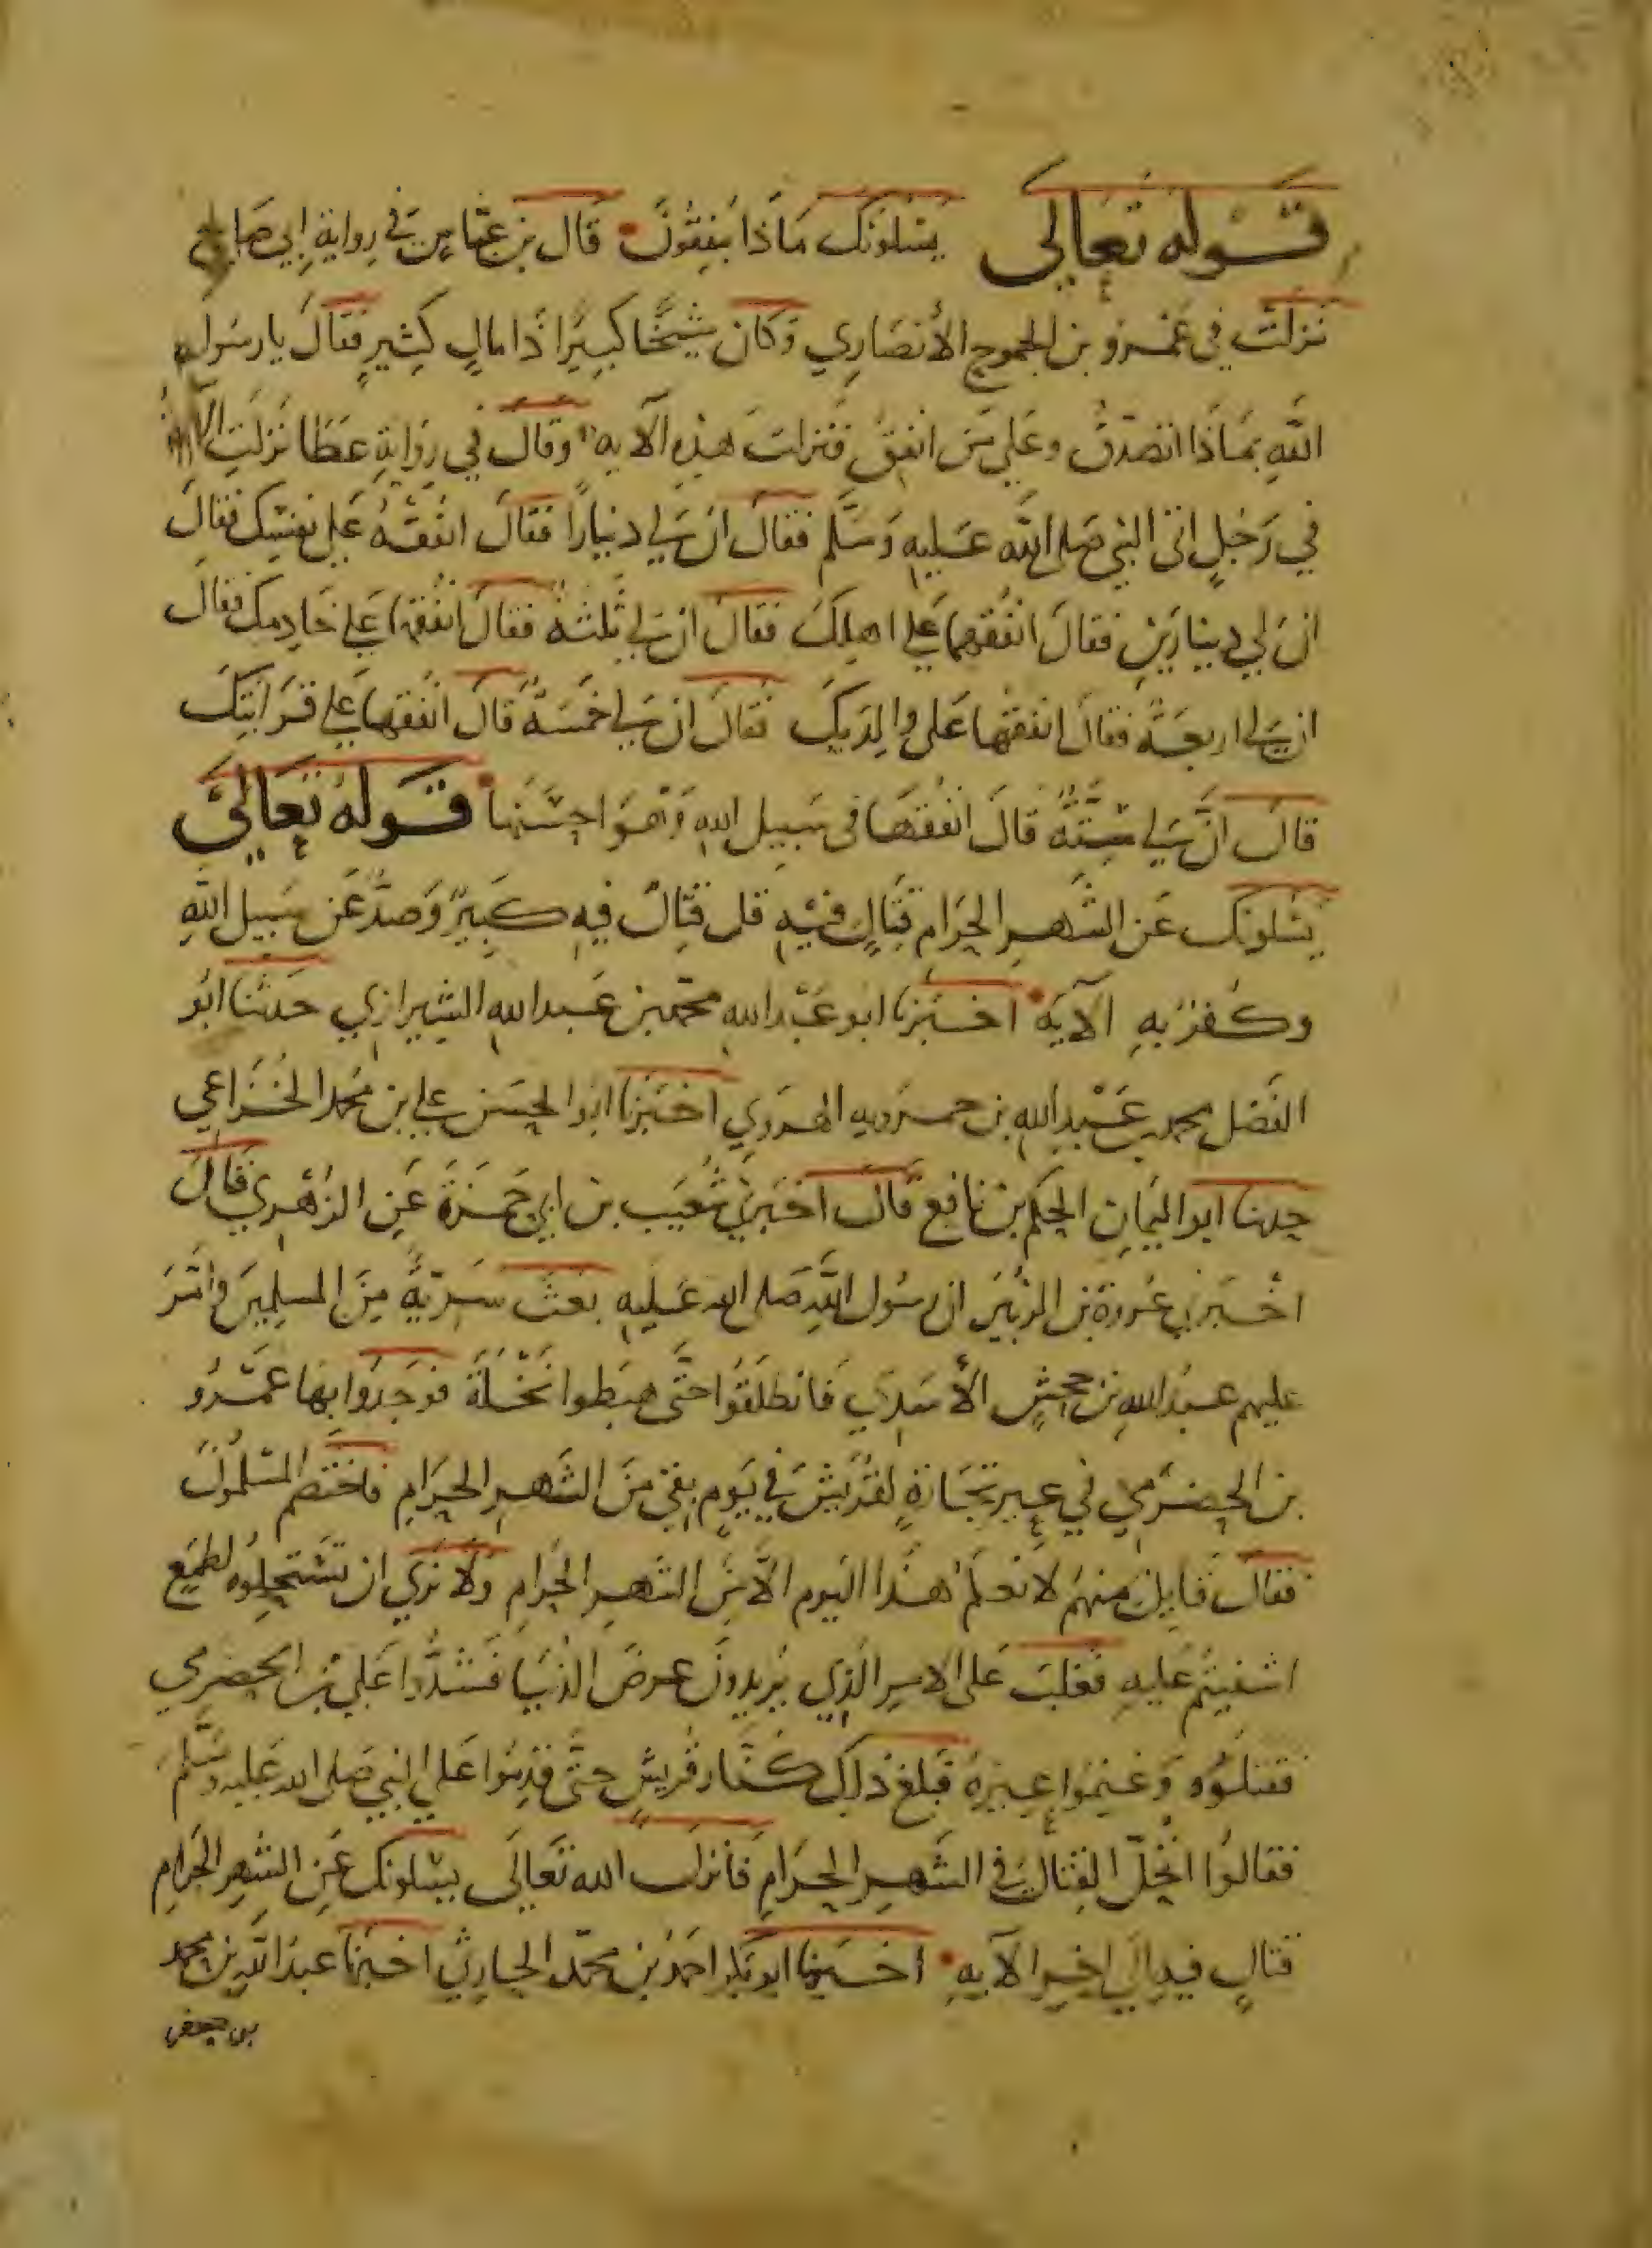 قوله تعالى يسلونك ماذا ينفقون قال بن عباس في رواية ابي صالح
نزلت في عمرو بن الجموح الأنصاري وكان شيخا كبيرا ذا مال كثير فقال يا رسول
الله بماذا اتصدق وعلى من انفق فنزلت هذه الآيه وقال في رواية عطا نزلت
في رجل اتى النبي صلى الله عليه وسلم فقال ان لي دينارا فقال انفقه على نفسك فقال
ان لي دينارين فقال انفقهما على اهلك فقال ان لي ثلثة فقال انفقها على خادمك فقال
ان لي اربعة فقال انفقها على والديك فقال ان لي خمسة قال انفقها على قرابتك
قال ان لي ستة قال انفقها في سبيل الله وهو احسنها قوله تعالى
يسلونك عن الشهر الحرام قتال فيه قل قتال فيه كبير وصد عن سبيل الله
وكفر به الآية اخبرنا ابو عبد الله محمد بن عبد الله الشيرازي حدثنا ابو
الفضل محمد بن عبد الله بن حمرويه الهروي اخبرنا ابو الحسن علي بن محمد الخزاعي
حدثنا ابو اليمان الحكم بن نافع قال اخبرني شعيب بن ابي حمزة عن الزهري قال
اخبرني عروة بن الزبير ان رسول الله صلى الله عليه بعث سرية من المسلمين وامر
عليهم عبد الله بن جحش الأسدي فانطلقوا حتى هبطوا نخلة فوجدوا بها عمرو
بن الحضرمي في عير تجارة لقريش في يوم بقي من الشهر الحرام فاختصم المسلمون
فقال قايل منهم لا نعلم هذا اليوم الا من الشهر الحرام ولا نرى ان تستحلوه لطمع
اشفيتم عليه فغلب على الامر الذي يريدون عرض الدنيا فشدوا على بن الحضرمي
فقتلوه وغنموا عيره فبلغ ذلك كفار قريش حتى قدموا على النبي صلى الله عليه وسلم
فقالوا اتحل القتال في الشهر الحرام فانزل الله تعالى يسلونك عن الشهر الحرام
قتال فيه الى اخر الآيه اخبرنا ابو بكر احمد بن محمد الحارثي اخبرنا عبد الله بن محمد
بن جعفر